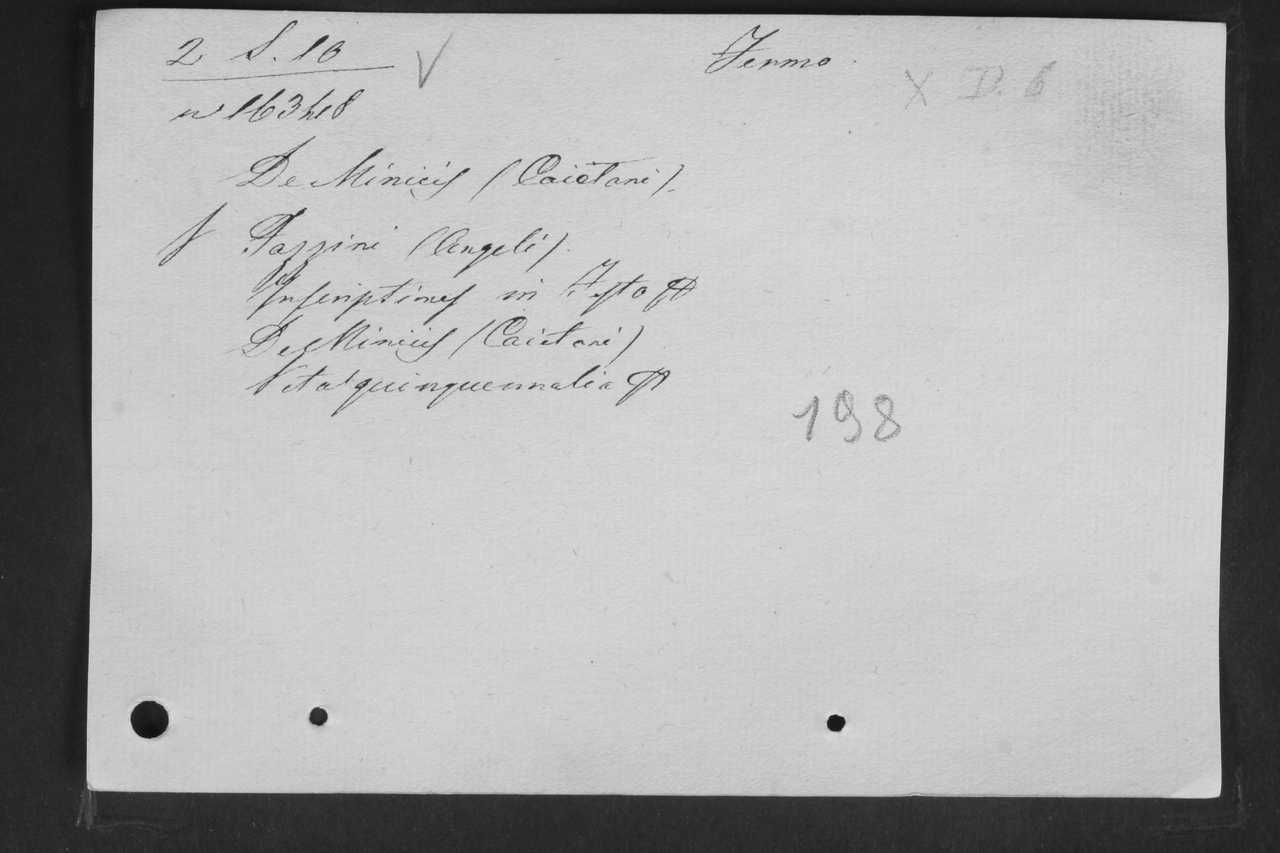 2 S. 10
Fermo.
X D. 6
n 16348
De Minicis (Caietani).
Fazzini (Angeli).
Inscriptiones in Festo
De Minicis (Caietani)
Vota quinquennalia
198